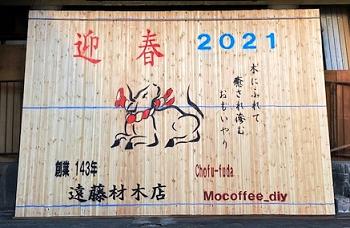 迎春 2021
木にふれて
癒され滲む
おもいやり
創業 143年
遠藤材木店
Chofu-fuda
Mocoffee_diy